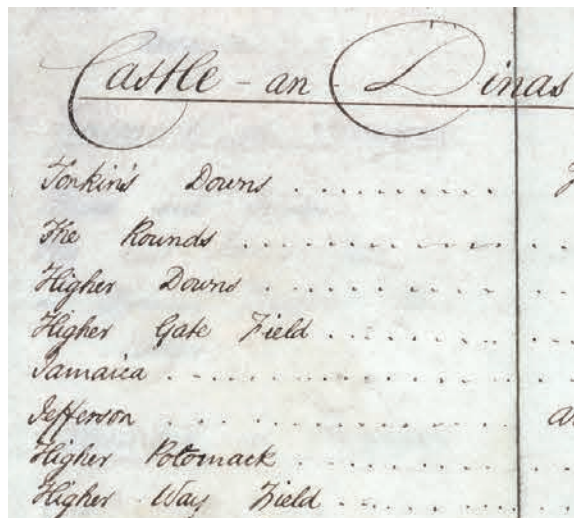 Castle - an - Dinas
Tonkin's Downs
The Rounds
Higher Downs
Higher Gate Field
Jamaica
Jefferson
Higher Potomack
Higher Way Field